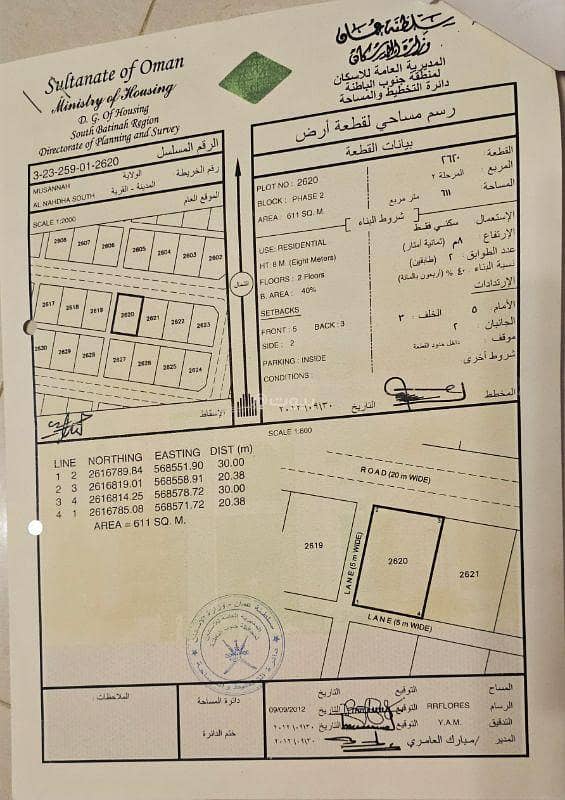 Sultanate of Oman
Ministry of Housing
D. G. Of Housing
South Batinah Region
Directorate of Planning and Survey
سلطنة عمان
وزارة الإسكان
المديرية العامة للاسكان
لمنطقة جنوب الباطنة
دائرة التخطيط والمساحة
الرقم المسلسل
3-23-259-01-2620
رقم الخريطة
MUSANNAH الولاية
AL NAHDHA SOUTH المدينة - القرية
الموقع العام
SCALE 1:2000
2608 2607 2606 2605 2604 2603 2602
2617 2618 2619 2620 2621 2622 2623
2630 2629 2628 2627 2626 2625 2624
الإسقاط
الشمال
رسم مساحي لقطعة أرض
بيانات القطعة
PLOT NO : 2620 ٢٦٢٠ القطعة :
BLOCK : PHASE 2 المرحلة ٢ المربع
AREA : 611 SQ. M. ٦١١ متر مربع المساحة
شروط البناء
USE: RESIDENTIAL سكني فقط الإستعمال
HT 8 M. (Eight Meters) ٨م (ثمانية أمتار) الإرتفاع
FLOORS : 2 Floors ٢ (طابقين) عدد الطوابق
B. AREA : 40% ٤٠ % (أربعون بالمائة) نسبة البناء
SETBACKS الإرتدادات
FRONT : 5 BACK : 3 الأمام ٥ الخلف : ٣
SIDE : 2 الجانبان ٢
PARKING : INSIDE موقف: داخل حدود القطعة
CONDITIONS : شروط أخرى
المخطط
التاريخ ٢٠١٢/٠٩/٣٠
SCALE 1:800
LINE NORTHING EASTING DIST (m)
1 2 2616789.84 568551.90 30.00
2 3 2616819.01 568558.91 20.38
3 4 2616814.25 568578.72 30.00
4 1 2616785.08 568571.72 20.38
AREA = 611 SQ. M.
ROAD (20 m WIDE)
2619
LANE (5 m WIDE)
2620
2621
LANE (5 m WIDE)
الملاحظات :
دائرة المساحة
ختم الدائرة
09/09/2012 التاريخ التوقيع المساح
RRFLORES الرسام
التاريخ التوقيع Y.A.M. التدقيق
التاريخ مبارك العامري / المدير